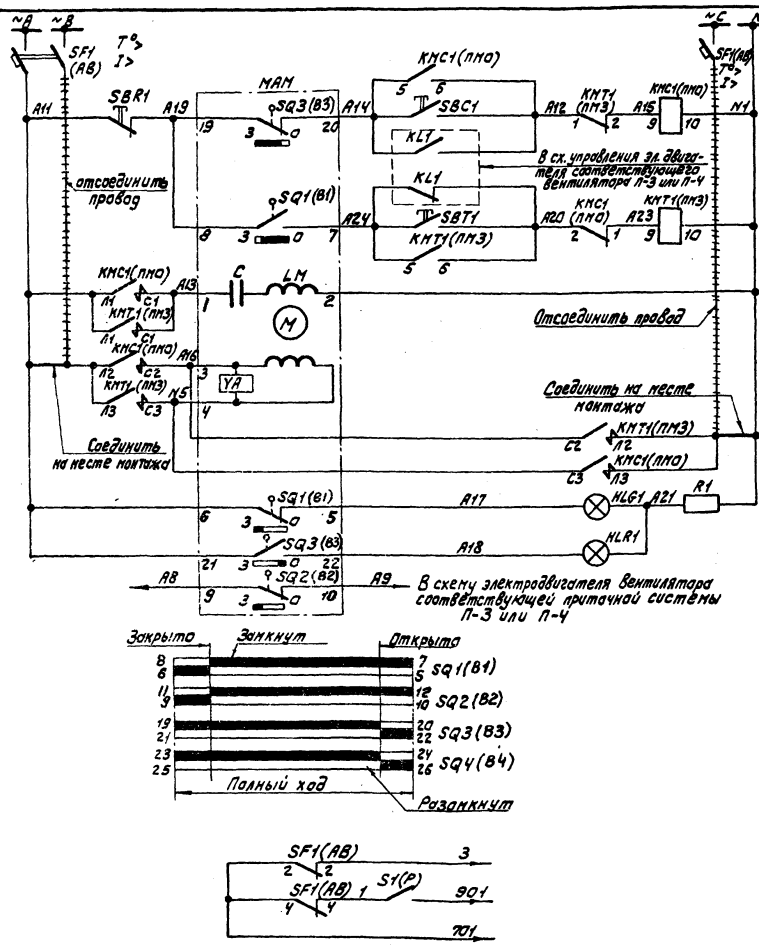 ~А ~В ~С N
SF1 (АВ) Т°> I>
SF1(АВ) Т°> I>
КМС1(ПМО)
5 6
МАМ
А11 SBR1 А19 19 SQ3(В3) 3 0 20 А14 SBC1 А12 КМТ1 (ПМЗ) 1 2 А15 КМС1(ПМО) 9 10 N1
KL1
В сх. управления эл. двига-
теля соответствующего
вентилятора П-3 или П-4
KL1
отсоединить
провод
8 SQ1(В1) 3 0 7 А24 SBT1 А20 КМС1 (ПМО) 2 1 А23 КМТ1(ПМЗ) 9 10
КМТ1(ПМЗ)
5 6
КМС1(ПМО)
Л1 С1 А13 1 С LM 2
КМТ1(ПМЗ)
Л1 С1
М
Отсоединить провод
КМС1(ПМО)
Л2 С2 А16 3
YA
КМТ1(ПМЗ)
Л3 С3 N5 4
Соединить на месте
монтажа
Соединить
на месте монтажа
С2 КМТ1(ПМЗ) Л2
С3 КМС1(ПМО) Л3
6 SQ1(В1) 3 0 5 А17 HLG1 А21 R1
21 SQ3(В3) 3 0 22 А18 HLR1
А8 9 SQ2(В2) 3 0 10 А9
В схему электродвигателя вентилятора
соответствующей приточной системы
П-3 или П-4
Закрыто Замкнут Открыто
8 7
6 5 SQ1(В1)
11 12
9 10 SQ2(В2)
19 20
21 22 SQ3(В3)
23 24
25 26 SQ4(В4)
Полный ход
Разомкнут
SF1(АВ) 3
2 2
SF1(АВ) 1 S1(Р) 901
4 4
701